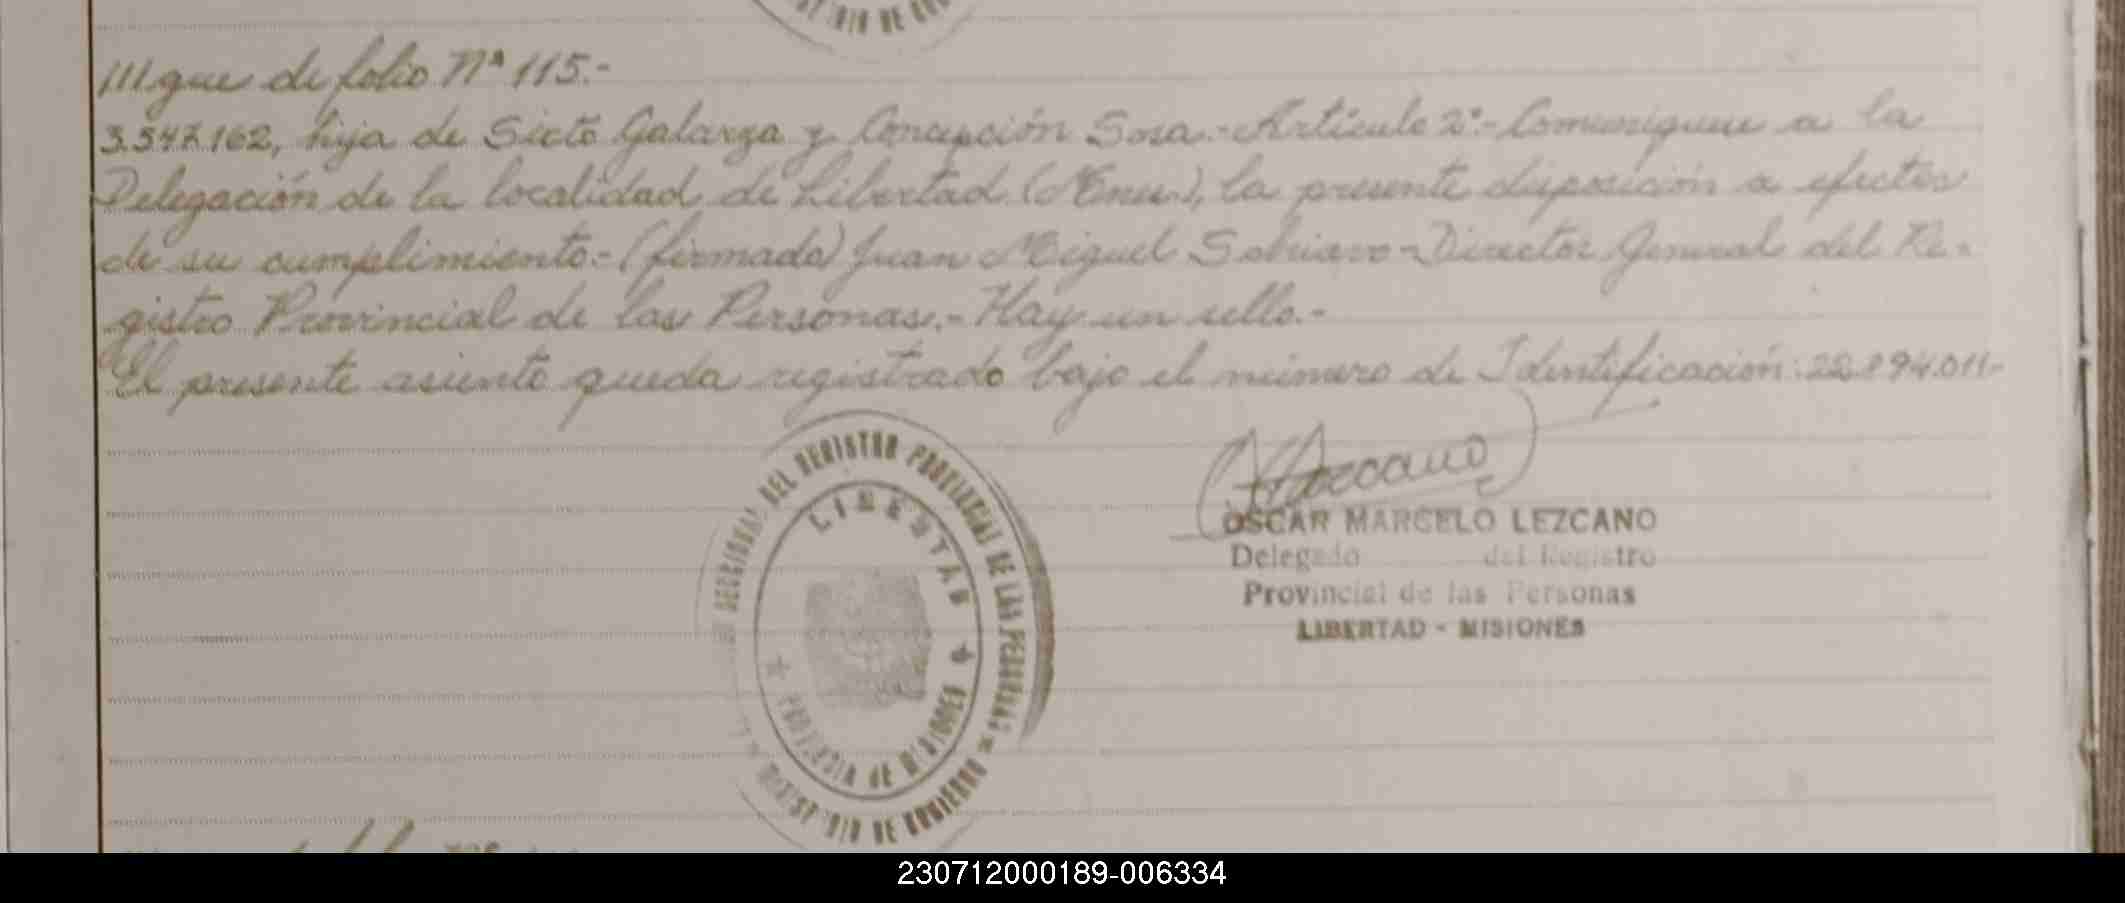 ///gue de folio Nº 115.-
3.347.162, hija de Sixto Galarza y Concepción Sosa.- Artículo 2º.- Comuníquese a la
Delegación de la localidad de Libertad (Mnes.), la presente disposición a efectos
de su cumplimiento.- (firmado) Juan Miguel Director General del Re-
gistro Provincial de las Personas.- Hay un sello.-
El presente asiento queda registrado bajo el número de Identificación: 22.894.011-
SECCIONAL DEL REGISTRO PROVINCIAL DE LAS PERSONAS
MINISTERIO DE GOBIERNO
LIBERTAD
PROVINCIA DE MISIONES
OSCAR MARCELO LEZCANO
Delegado del Registro
Provincial de las Personas
LIBERTAD - MISIONES
230712000189-006334